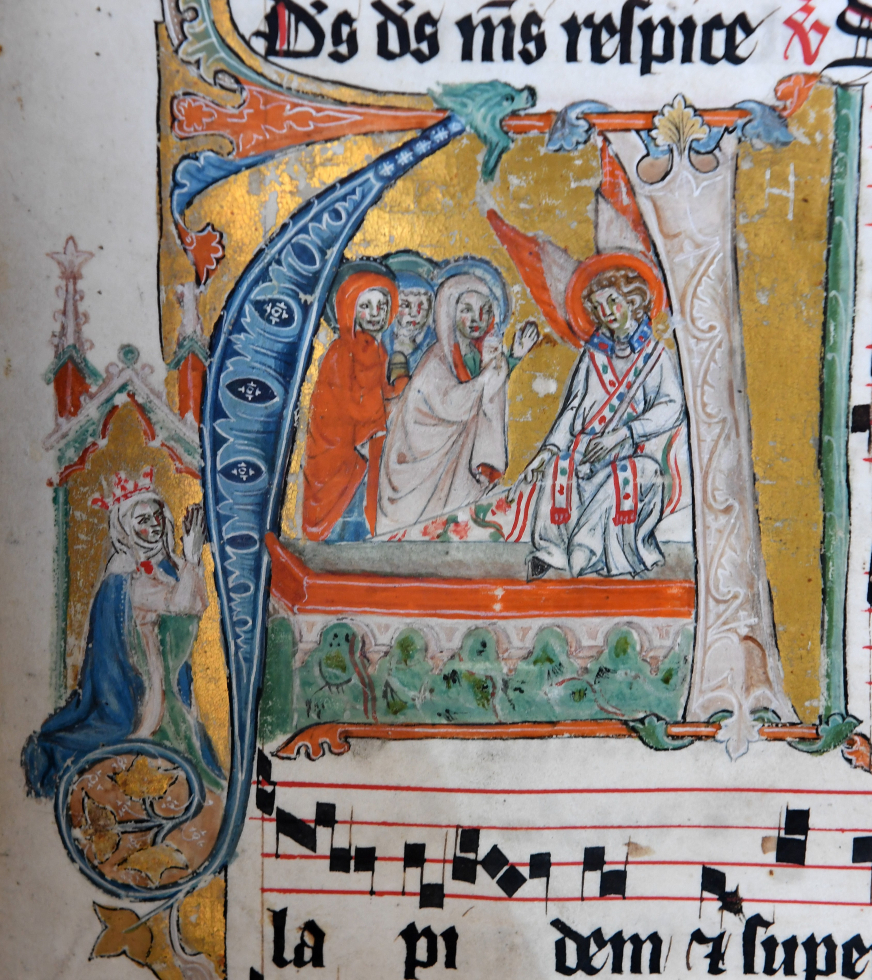 D̾s d̾s m̅s respice ℣
la pi dem ⁊ supe